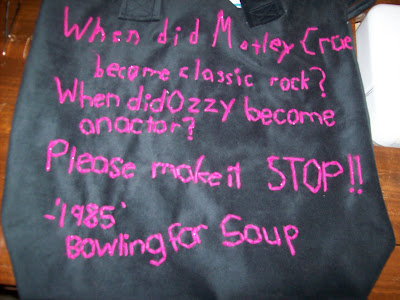 When did Motley Crue
become classic rock?
When did Ozzy become
an actor?
Please make it STOP!!
-'1985'
Bowling for Soup